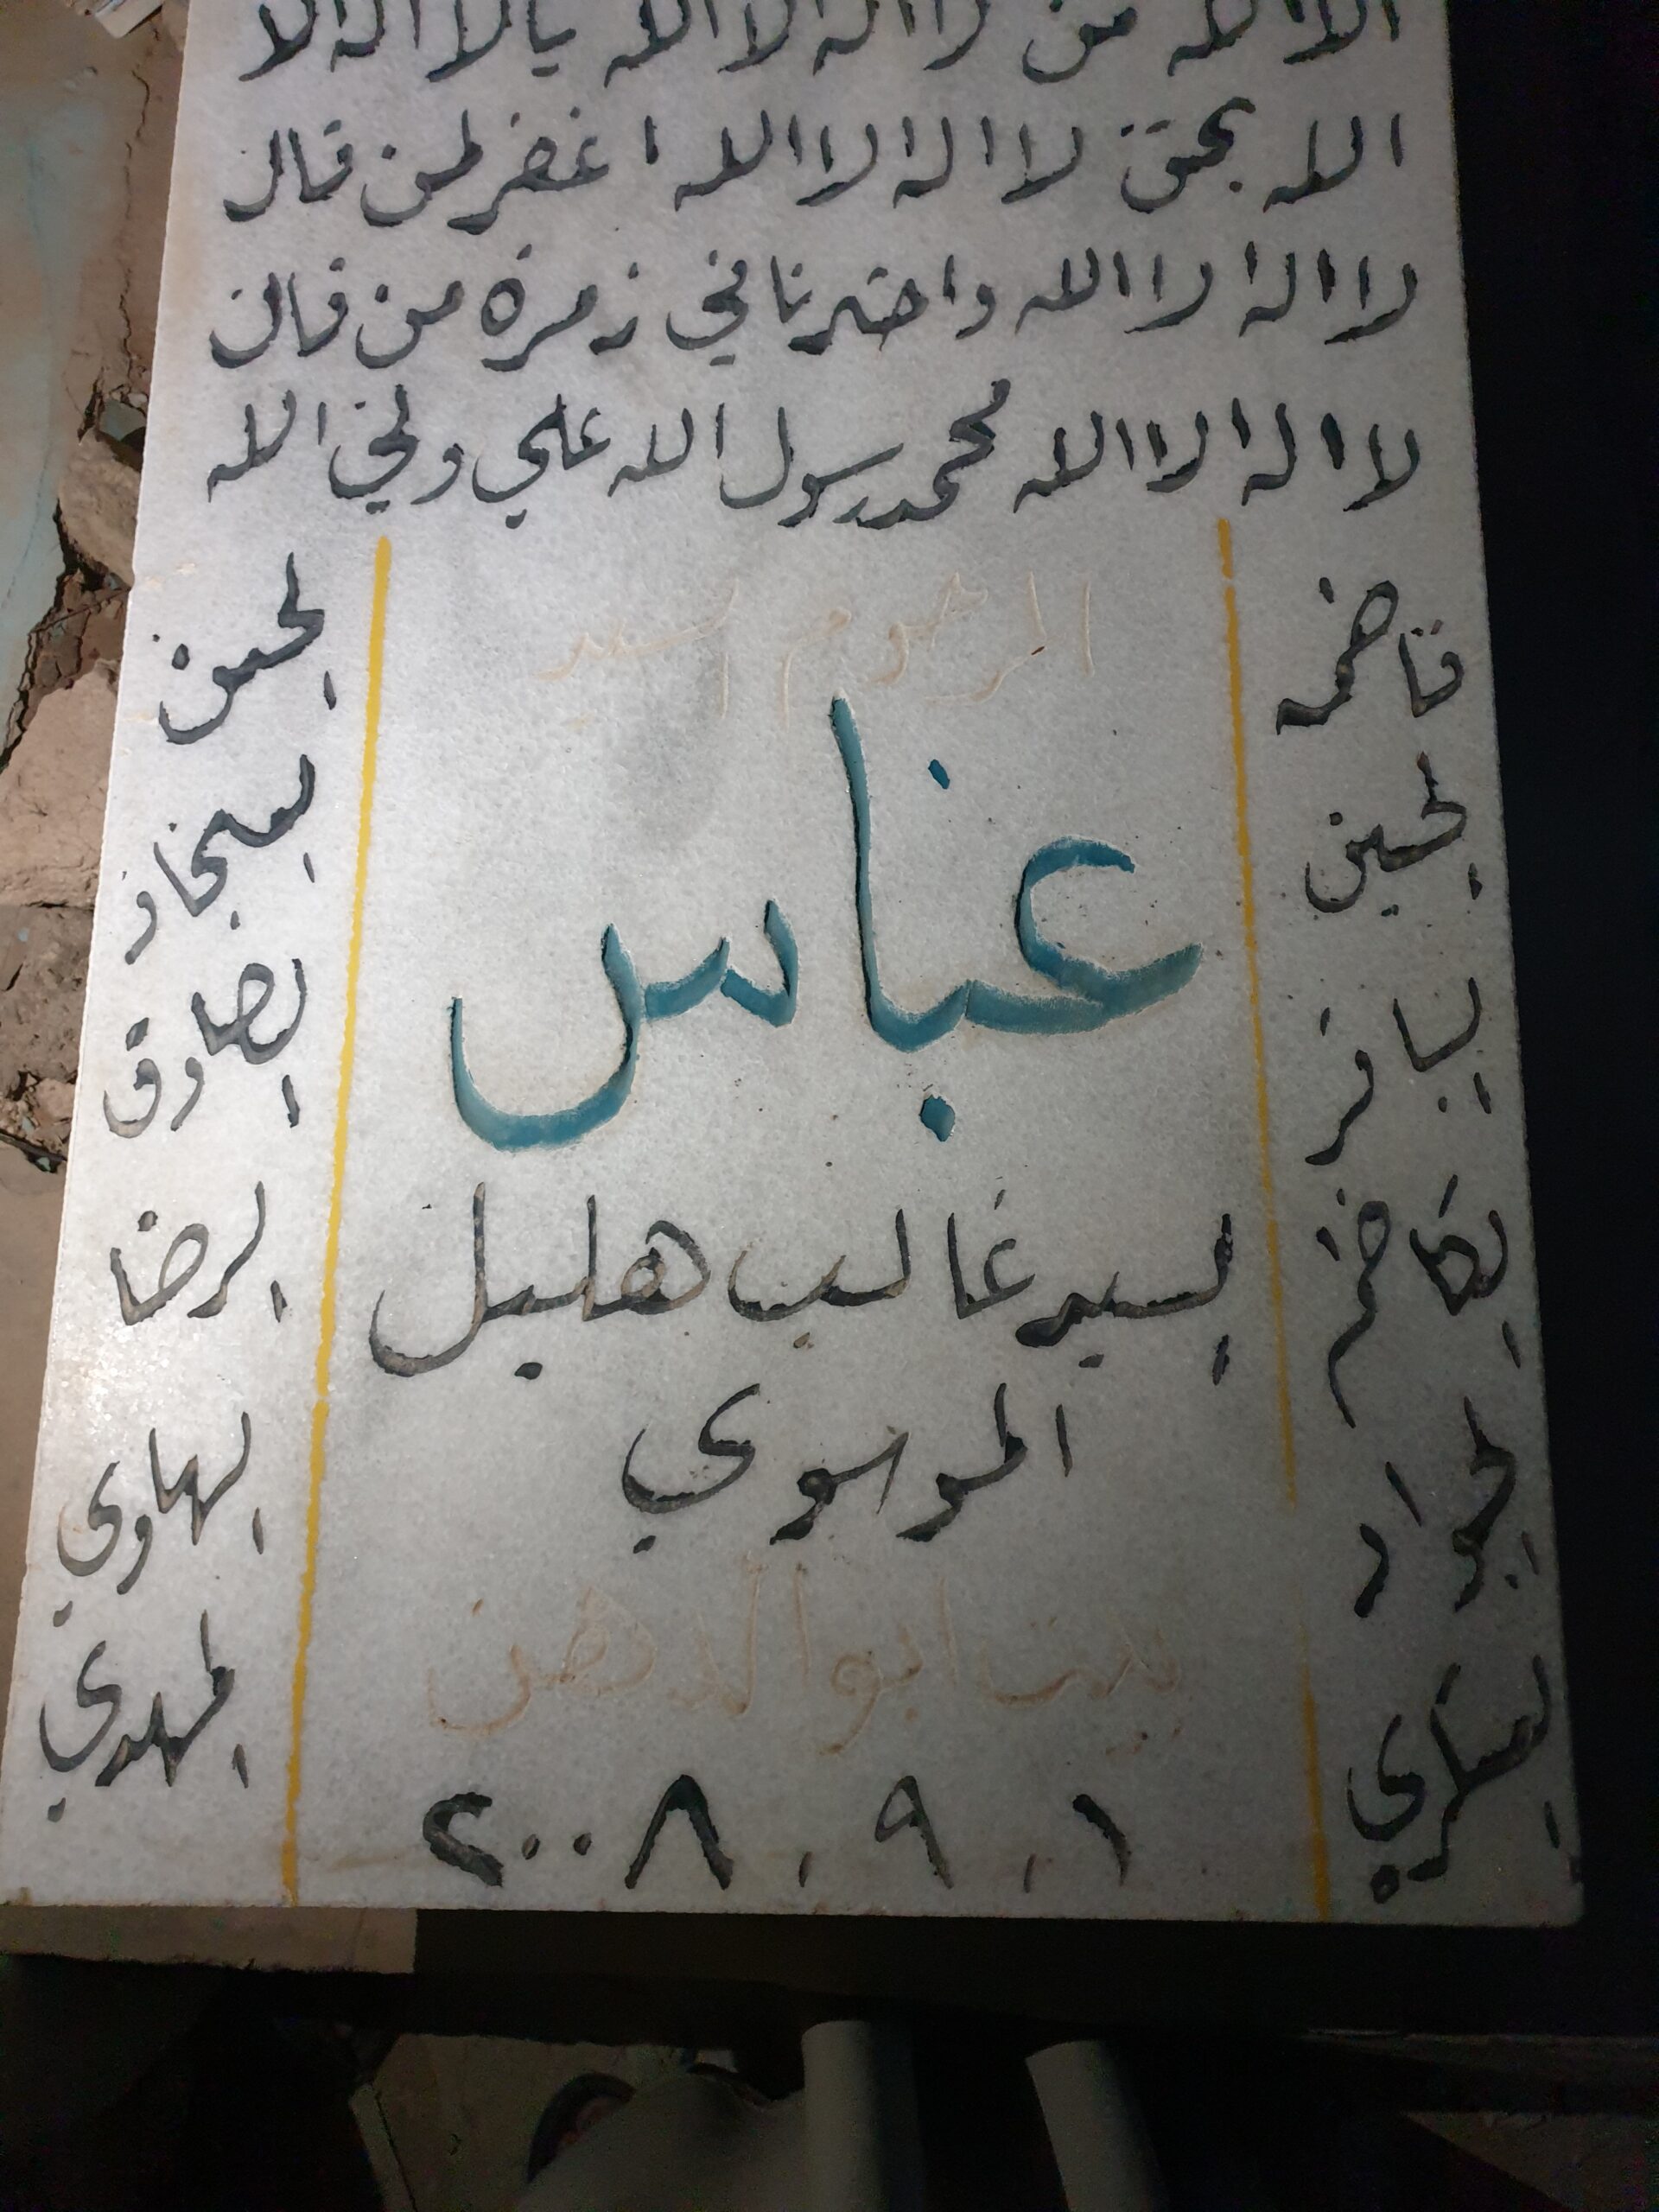 الا الله من لا اله الا الله يا لا اله الا
الله بحق لا اله الا الله اغفر لمن قال
لا اله الا الله واحشرنا في زمرة من قال
لا اله الا الله محمد رسول الله علي ولي الله
فاطمه
الحسين
الباقر
الكاظم
الجواد
العسكري
المرحوم السيد
عباس
السيد غالب هليل
الموسوي
بيت ابو الدهن
٢٠٠٨/٩/١
الحسن
السجاد
الصادق
الرضا
الهادي
المهدي